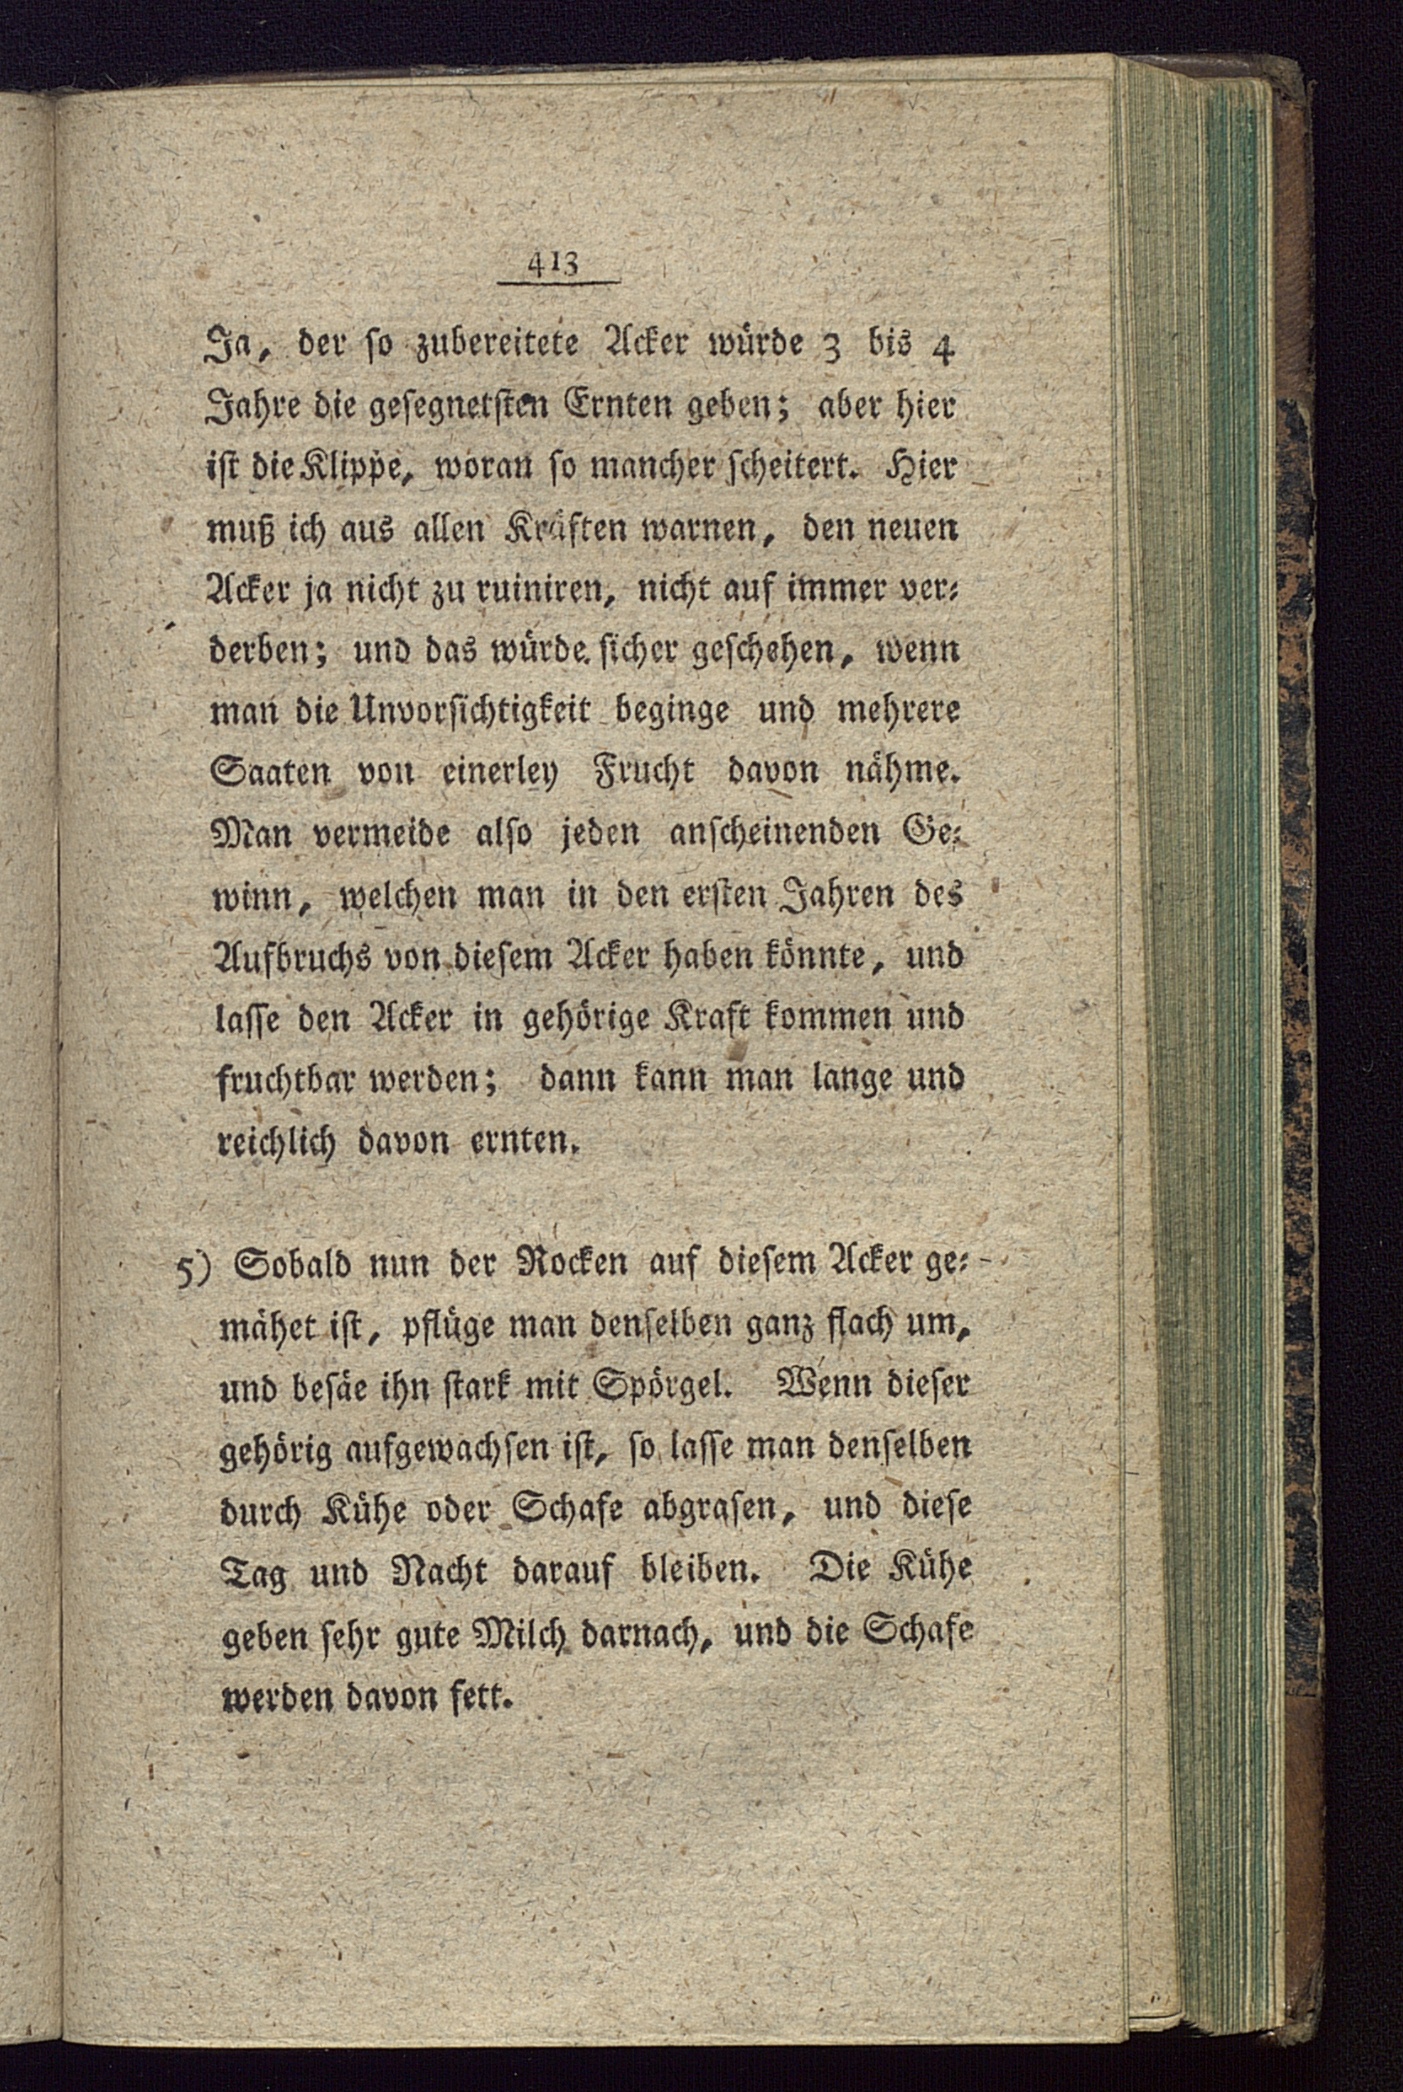 413
Ja, der so zubereitete Acker würde 3 bis 4
Jahre die gesegnetsten Ernten geben; aber hier
ist die Klippe, woran so mancher scheitert. Hier
muß ich aus allen Kräften warnen, den neuen
Acker ja nicht zu ruiniren, nicht auf immer ver-
derben; und das würde sicher geschehen, wenn
man die Unvorsichtigkeit beginge und mehrere
Saaten von einerley Frucht davon nähme.
Man vermeide also jeden anscheinenden Ge-
winn, welchen man in den ersten Jahren des
Aufbruchs von diesem Acker haben könnte, und
lasse den Acker in gehörige Kraft kommen und
fruchtbar werden; dann kann man lange und
reichlich davon ernten.
5) Sobald nun der Rocken auf diesem Acker ge-
mähet ist, pflüge man denselben ganz flach um,
und besäe ihn stark mit Spörgel. Wenn dieser
gehörig aufgewachsen ist, so lasse man denselben
durch Kühe oder Schafe abgrasen, und diese
Tag und Nacht darauf bleiben. Die Kühe
geben sehr gute Milch darnach, und die Schafe
werden davon fett.